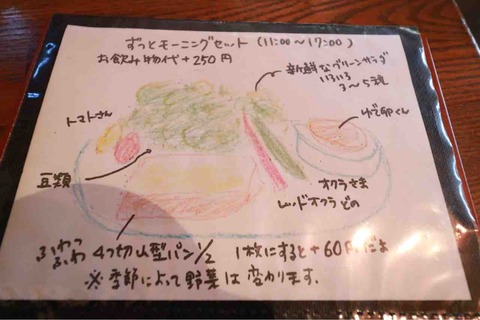 ずっとモーニングセット(11:00～17:00)
お飲み物代+250円
新鮮なグリーンサラダ
いろいろ
3～5種
トマトさん
ゆで卵くん
豆類
オクラさま
レッドオクラどの
ふわっ
ふわ
4つ切山型パン1/2 1枚にすると+60円だよ
※季節によって野菜は変わります。